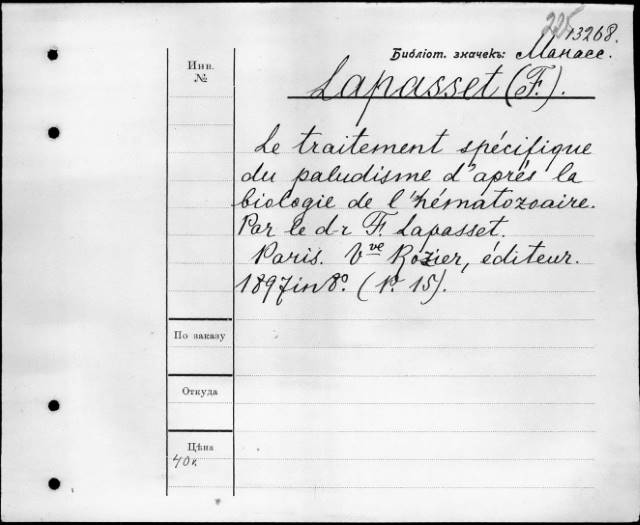 225
13268.
Библіот. значекъ: Манасс.
Инв.
№
Lapasset (F.).
Le traitement spécifique
du paludisme d'après la
biologie de l'hématozoaire.
Par le d-r F. Lapasset.
Paris. Vve Rozier, éditeur.
1897 in 8°. (p. 15).
По заказу
Откуда
Цѣна
40к.